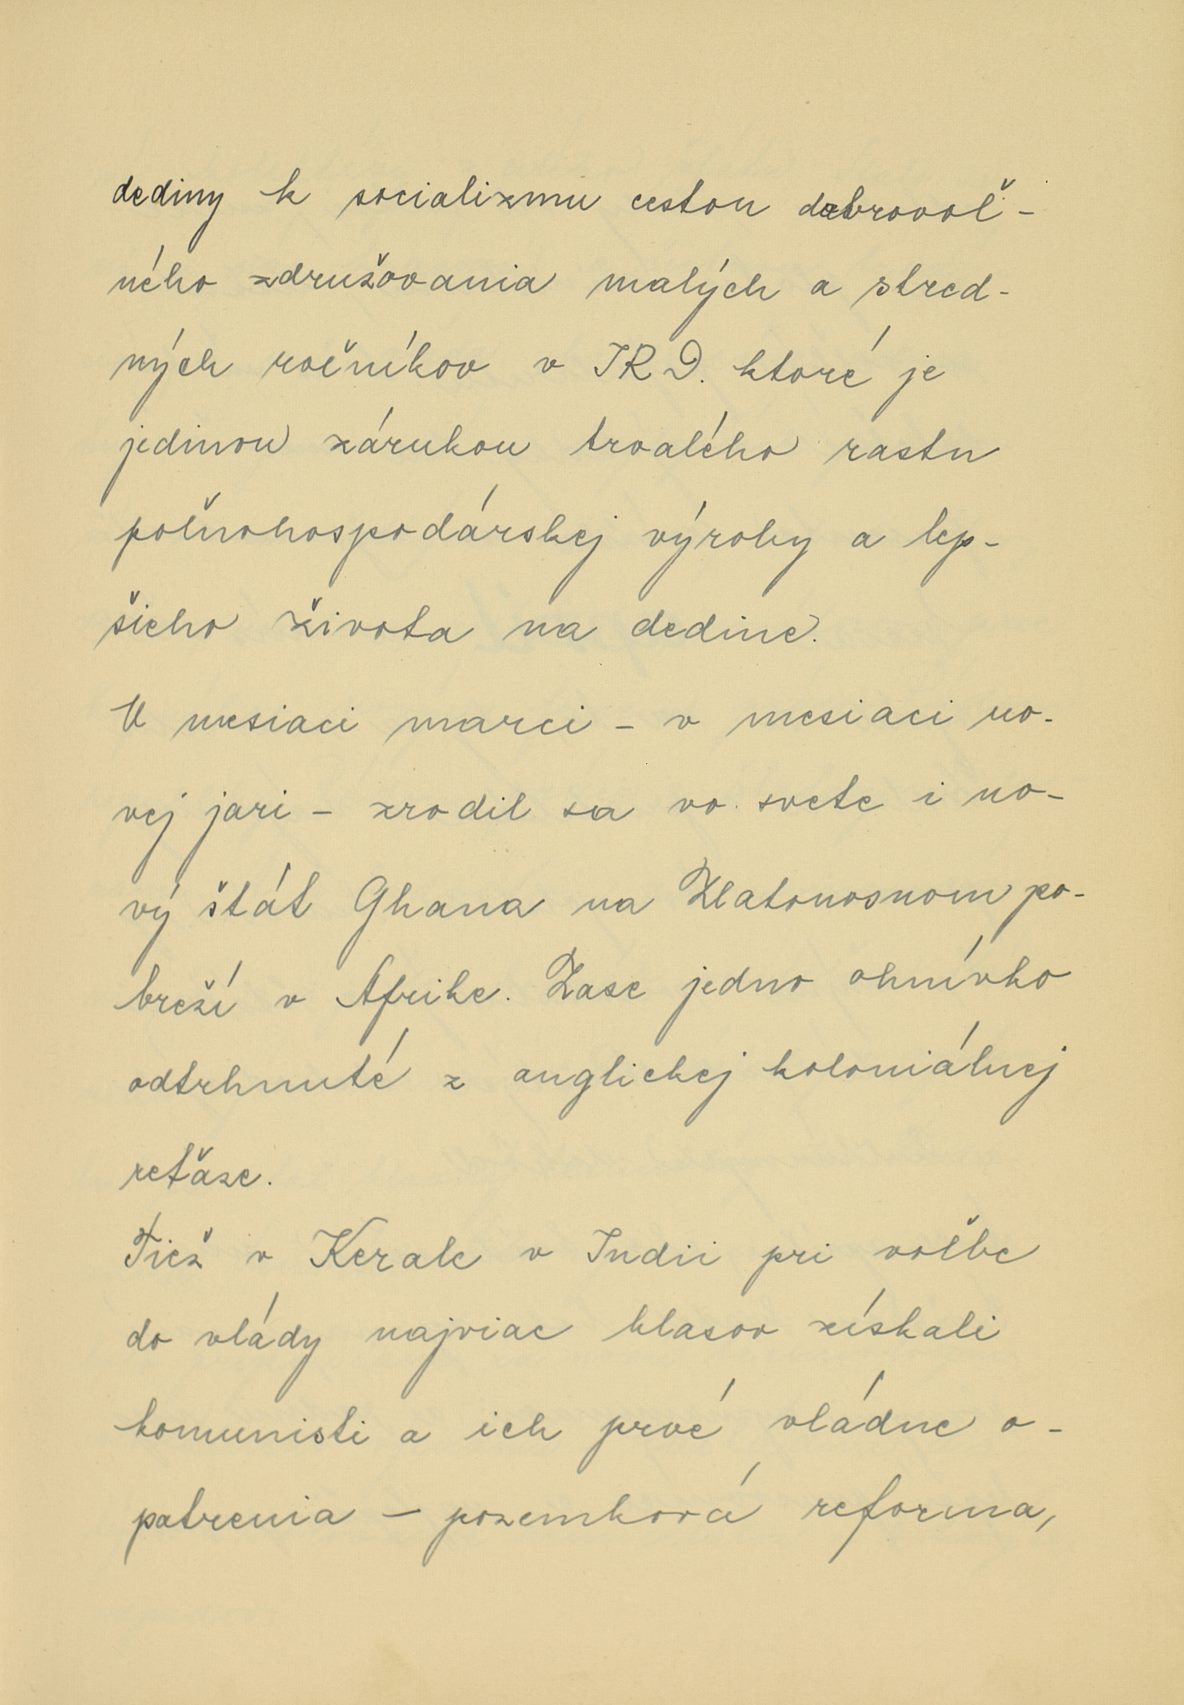 dediny k socializmu cestou dobrovoľ-
ného združovania malých a stred-
ných roľníkov v JRD. ktoré je
jedinou zárukou trvalého rastu
poľnohospodárskej výroby a lep-
šieho života na dedine.
V mesiaci marci – v mesiaci no-
vej jari – zrodil sa vo svete i no-
vý štát Ghana na Zlatonosnom po-
breží v Afrike. Zase jedno ohnívko
odtrhnuté z anglickej koloniálnej
reťaze.
Tiež v Kerale v Indii pri voľbe
do vlády najviac hlasov získali
komunisti a ich prvé vládne o-
patrenia – pozemková reforma,